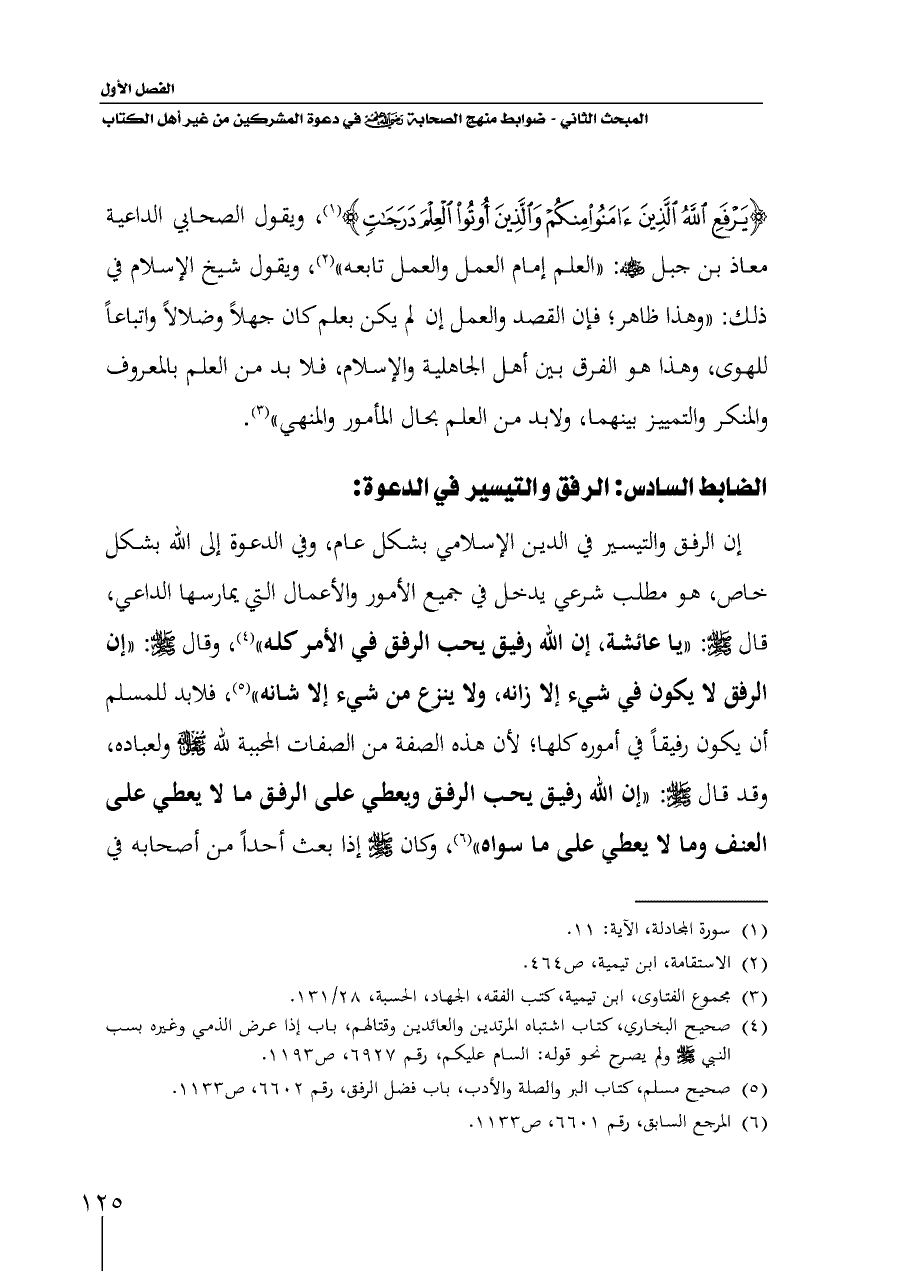 الفصل الأول
المبحث الثاني - ضوابط منهج الصحابة رضي الله عنهم في دعوة المشركين من غير أهل الكتاب
﴿يَرْفَعِ ٱللَّهُ ٱلَّذِينَ ءَامَنُوا۟ مِنكُمْ وَٱلَّذِينَ أُوتُوا۟ ٱلْعِلْمَ دَرَجَٰتٍ﴾(١)، ويقول الصحابي الداعية
معاذ بن جبل رضي الله عنه: «العلم إمام العمل والعمل تابعه»(٢)، ويقول شيخ الإسلام في
ذلك: «وهذا ظاهر؛ فإن القصد والعمل إن لم يكن بعلم كان جهلاً وضلالاً واتباعاً
للهوى، وهذا هو الفرق بين أهل الجاهلية والإسلام، فلا بد من العلم بالمعروف
والمنكر والتمييز بينهما، ولابد من العلم بحال المأمور والمنهي»(٣).
الضابط السادس: الرفق والتيسير في الدعوة:
إن الرفق والتيسير في الدين الإسلامي بشكل عام، وفي الدعوة إلى الله بشكل
خاص، هو مطلب شرعي يدخل في جميع الأمور والأعمال التي يمارسها الداعي،
قال ﷺ: «يا عائشة، إن الله رفيق يحب الرفق في الأمر كله»(٤)، وقال ﷺ: «إن
الرفق لا يكون في شيء إلا زانه، ولا ينزع من شيء إلا شانه»(٥)، فلابد للمسلم
أن يكون رفيقاً في أموره كلها؛ لأن هذه الصفة من الصفات المحببة لله ولعباده،
وقد قال ﷺ: «إن الله رفيق يحب الرفق ويعطي على الرفق ما لا يعطي على
العنف وما لا يعطي على ما سواه»(٦)، وكان ﷺ إذا بعث أحداً من أصحابه في
(١) سورة المجادلة، الآية: ١١.
(٢) الاستقامة، ابن تيمية، ص٤٦٤.
(٣) مجموع الفتاوى، ابن تيمية، كتب الفقه، الجهاد، الحسبة، ١٣١/٢٨.
(٤) صحيح البخاري، كتاب اشتباه المرتدين والعائدين وقتالهم، باب إذا عرض الذمي وغيره بسب
النبي ﷺ ولم يصرح نحو قوله: السام عليكم، رقم ٦٩٢٧، ص١١٩٣.
(٥) صحيح مسلم، كتاب البر والصلة والأدب، باب فضل الرفق، رقم ٦٦٠٢، ص١١٣٣.
(٦) المرجع السابق، رقم ٦٦٠١، ص١١٣٣.
١٢٥